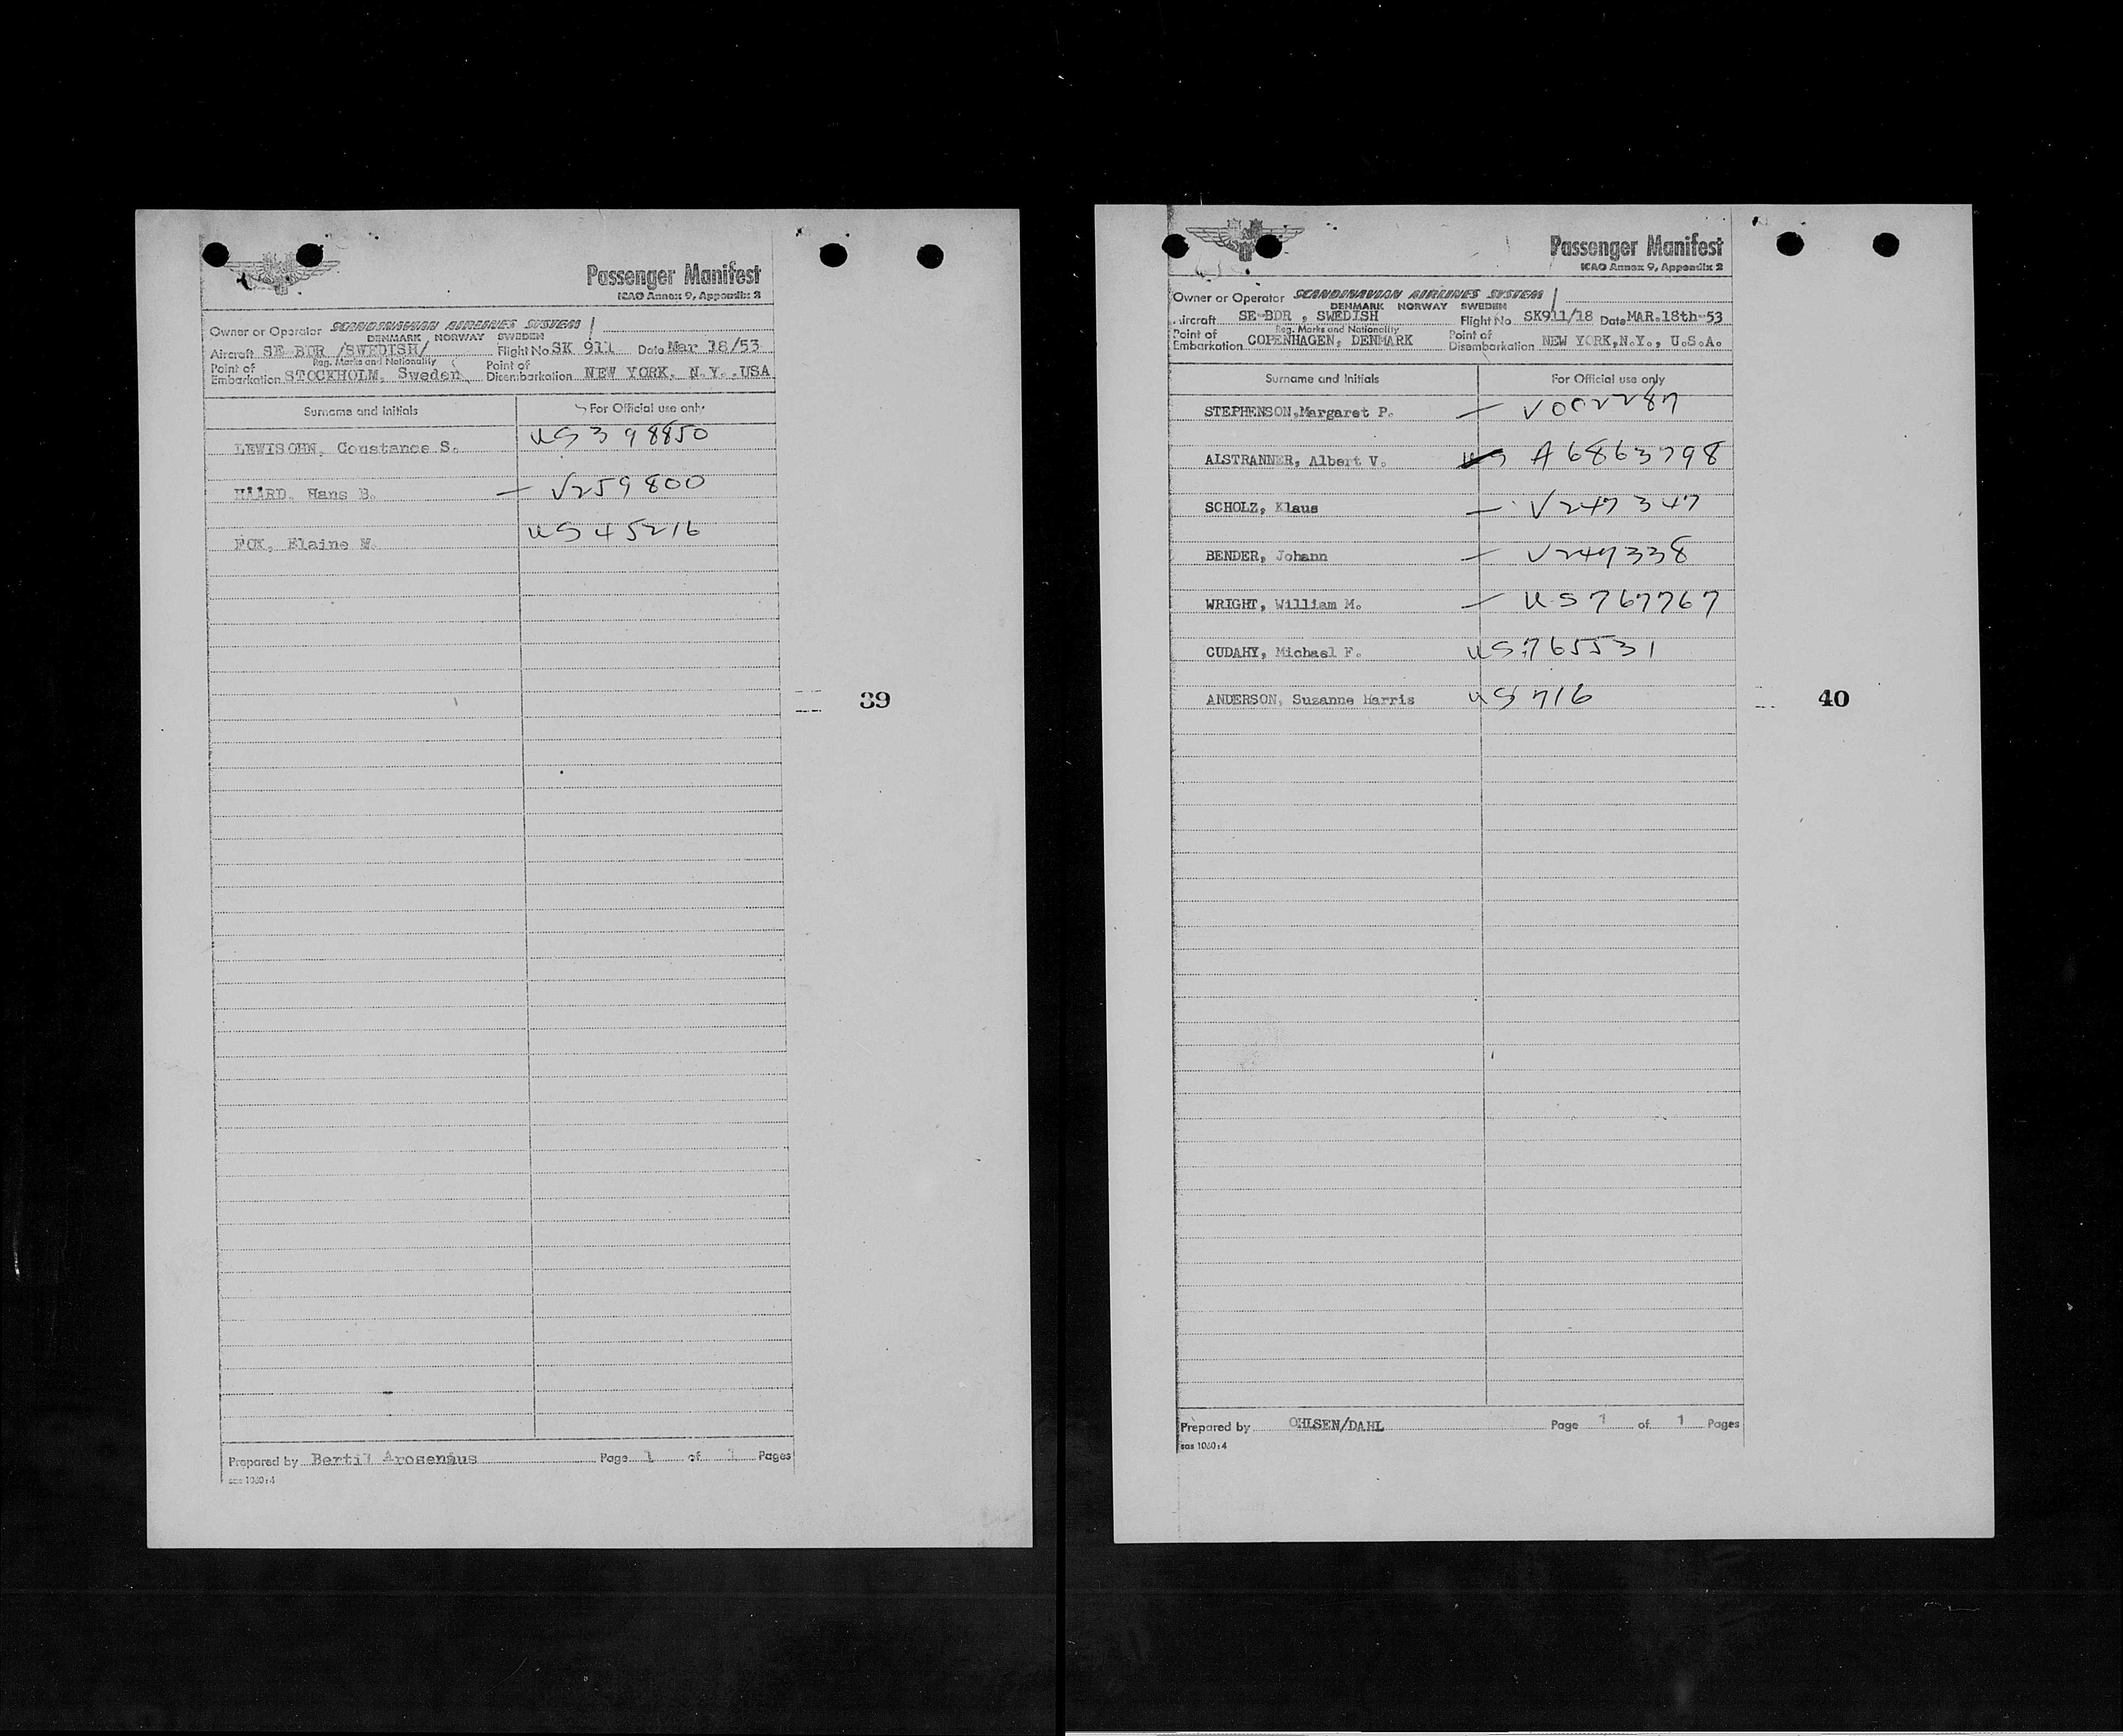 Passenger Manifest
ICAO Annex 9, Appendix 2
Owner or Operator SCANDINAVIAN AIRLINES SYSTEM
DENMARK NORWAY SWEDEN
Aircraft SE-BDR /SWEDISH/ Flight No SK 911 Date Mar 18/53
Reg. Marks and Nationality
Point of Embarkation STOCKHOLM, Sweden Point of Disembarkation NEW YORK, N.Y., USA
Surname and Initials For Official use only
LEWISOHN, Constance S. US 398850
Hans B. — V259800
FOX, Elaine M. US 45216
39
Prepared by Bertil Arosenius Page 1 of 1 Pages
sas 1060:4
Passenger Manifest
ICAO Annex 9, Appendix 2
Owner or Operator SCANDINAVIAN AIRLINES SYSTEM
DENMARK NORWAY SWEDEN
Aircraft SE-BDR , SWEDISH Flight No SK911/18 Date MAR.18th-53
Reg. Marks and Nationality
Point of Embarkation COPENHAGEN, DENMARK Point of Disembarkation NEW YORK,N.Y., U.S.A.
Surname and Initials For Official use only
STEPHENSON,Margaret P. — V002287
ALSTRANNER, Albert V. A6863798
SCHOLZ, Klaus — V247347
BENDER, Johann — V247338
WRIGHT, William M. — US767767
CUDAHY, Michael F. US765531
ANDERSON, Suzanne Harris US 716
40
Prepared by OHLSEN/DAHL Page 1 of 1 Pages
sas 1060:4